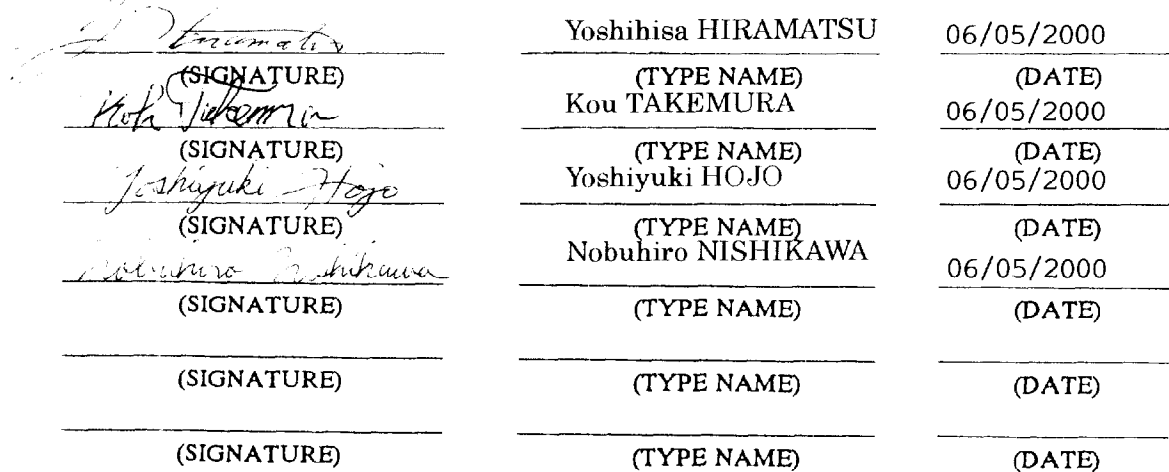 Y. Hiramatsu Yoshihisa HIRAMATSU 06/05/2000
(SIGNATURE) (TYPE NAME) (DATE)
Takemura Kou TAKEMURA 06/05/2000
(SIGNATURE) (TYPE NAME) (DATE)
Yoshiyuki Hojo Yoshiyuki HOJO 06/05/2000
(SIGNATURE) (TYPE NAME) (DATE)
Nobuhiro Nishikawa Nobuhiro NISHIKAWA 06/05/2000
(SIGNATURE) (TYPE NAME) (DATE)
(SIGNATURE) (TYPE NAME) (DATE)
(SIGNATURE) (TYPE NAME) (DATE)